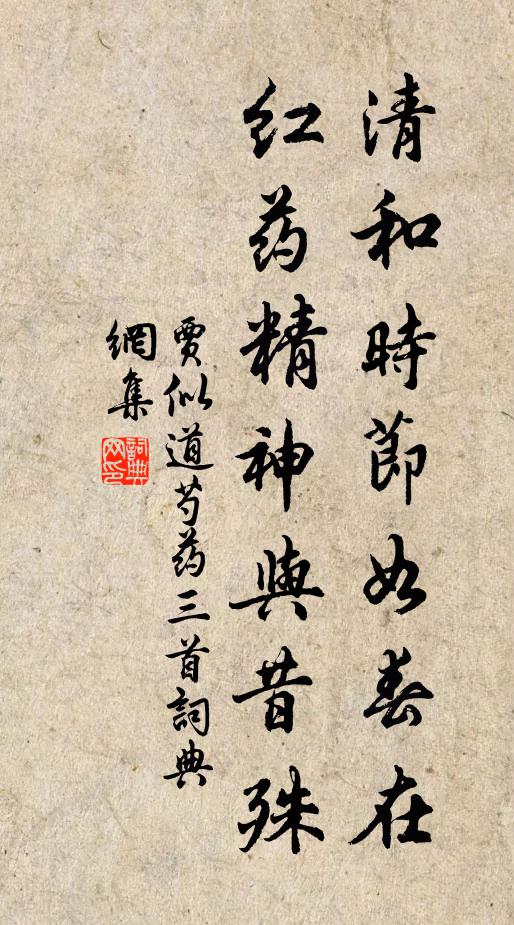 清和時節如春在
红药精神與昔殊
賈似道芍药三首詞典
網集
詞典
网印